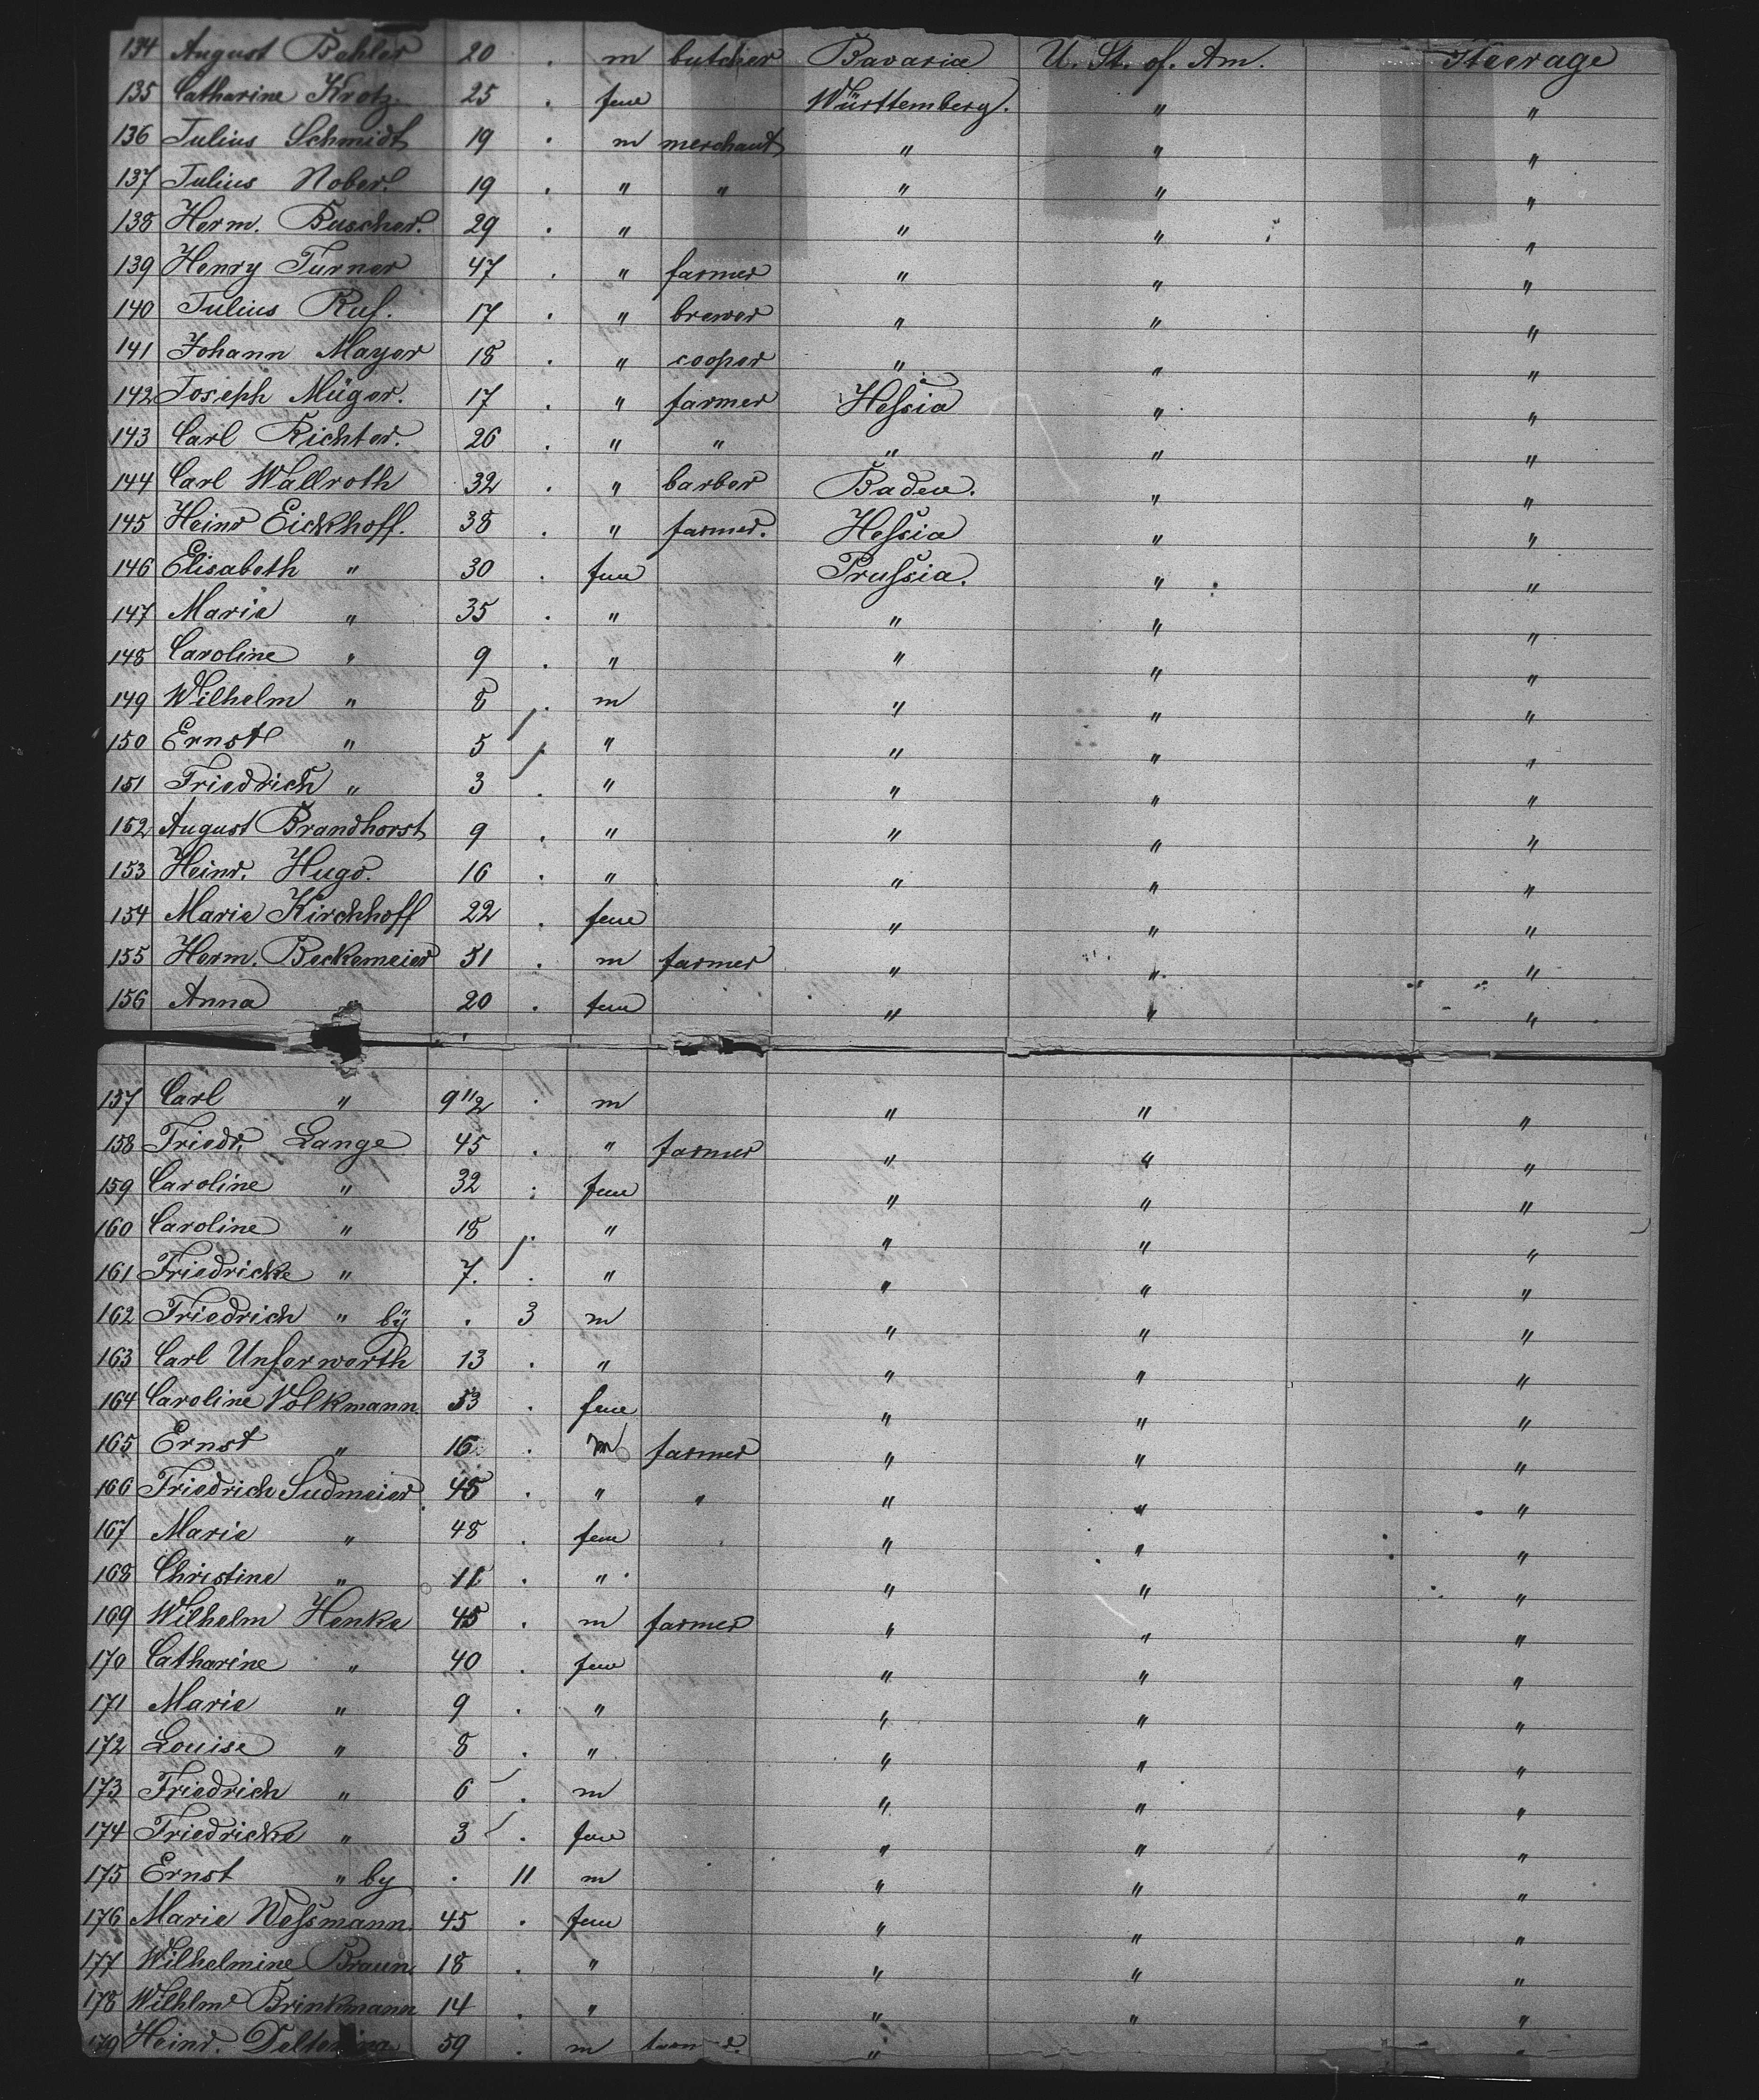 134 August Bahler 20 . m butcher Bavaria U. St. of. Am. Steerage
135 Catharine Krotz. 25 . fem Württemberg. " "
136 Julius Schmidt 19 . m merchant " " "
137 Julius Nober. 19 . " " " " "
138 Herm. Buscher. 29 . " " " "
139 Henry Turner 47 . " farmer " " "
140 Julius Ruf. 17 . " brewer " " "
141 Johann Mayer 18 . " cooper " " "
142 Joseph Müger. 17 . " farmer Heſsia " "
143 Carl Richter. 26 . " " " " "
144 Carl Wallroth 32 . " barber Baden. " "
145 Heinr Eickhoff. 38 . " farmer. Heſsia " "
146 Elisabeth " 30 . fem Pruſsia. " "
147 Marie " 35 . " " " "
148 Caroline " 9 . " " " "
149 Wilhelm " 8 . m " " "
150 Ernst " 5 . " " " "
151 Friedrich " 3 . " " " "
152 August Brandhorst 9 . " " " "
153 Heinr. Hugo. 16 . " " " "
154 Marie Kirchhoff 22 . fem " " "
155 Herm. Beckemeier 51 . m farmer " " "
156 Anna 20 . fem " " "
157 Carl " 9 11/2 . m " " "
158 Friedr. Lange 45 . " farmer " " "
159 Caroline " 32 . fem " " "
160 Caroline " 18 . " " " "
161 Friedricke " 7. . " " " "
162 Friedrich " by . 3 m " " "
163 Carl Unferwerth 13 . " " " "
164 Caroline Volkmann 53 . fem " " "
165 Ernst " 16 . m farmer " " "
166 Friedrich Sudmeier 48 . " " " " "
167 Marie " 48 . fem " " "
168 Christine " 11 . " " " "
169 Wilhelm Henke 45 . m farmer " " "
170 Catharine " 40 . fem " " "
171 Marie " 9 . " " " "
172 Louise " 8 . " " " "
173 Friedrich " 6 . m " " "
174 Friedricke " 3 . fem " " "
175 Ernst " by . 11 m " " "
176 Marie Weſsmann. 45 . fem " " "
177 Wilhelmine Braun. 18 . " " " "
178 Wilhlme Brinkmann 14 . " " " "
179 Heinr. 59 . m " "